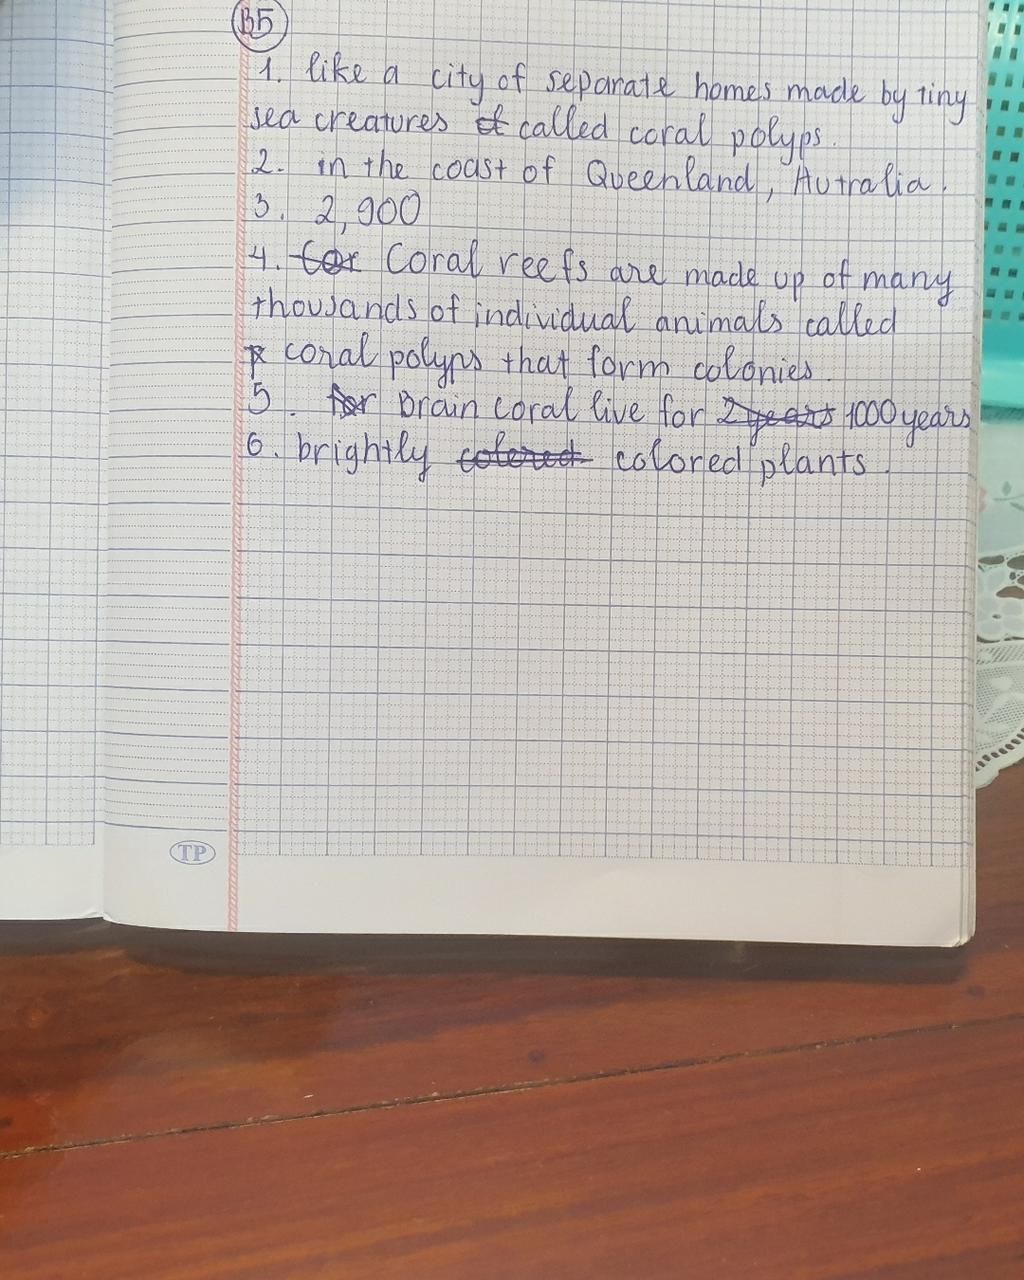 B5
1. like a city of separate homes made by tiny
sea creatures called coral polyps.
2. in the coast of Queenland, Autralia.
3. 2,900
4. Coral reefs are made up of many
thousands of individual animals called
coral polyps that form colonies.
5. brain coral live for 2 years 1000 years
6. brightly colored colored plants.
TP